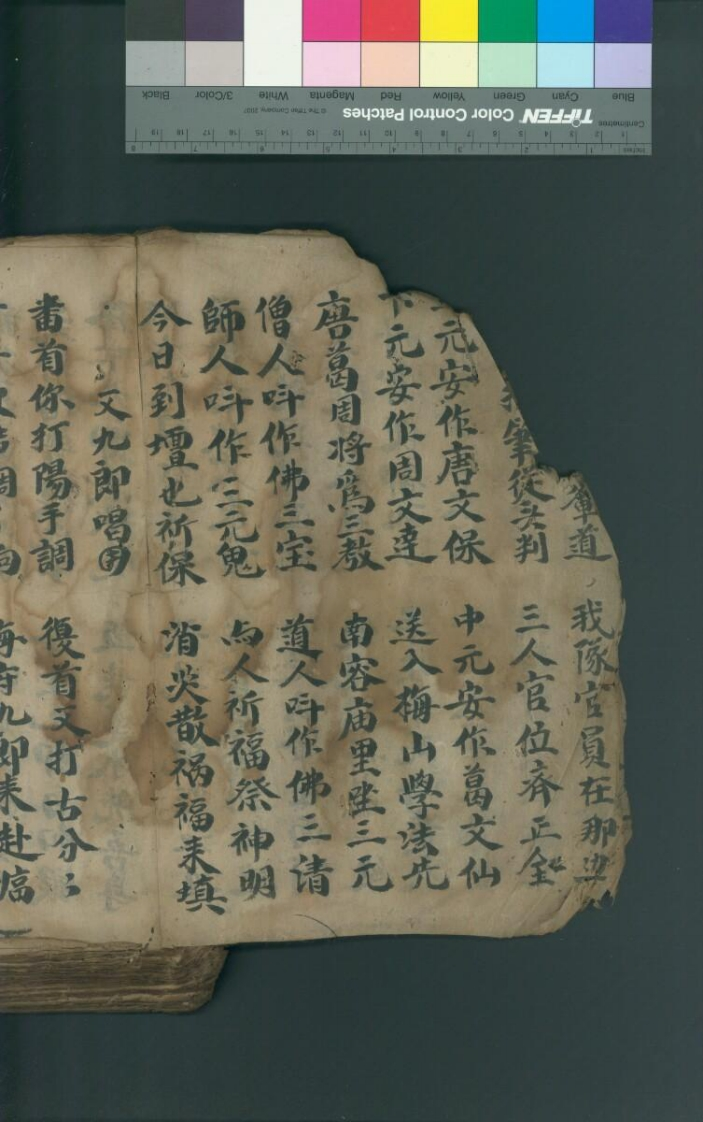 軍道 我隊官員在那边
筆從头判 三人官位齐正全
元安作唐文保 中元安作葛文仙
下元安作周文達 送入梅山學法先
唐葛周将為三教 南容庙里坐三元
僧人呌作佛三宝 道人呌作佛三清
師人呌作三元鬼 人祈福祭神明
今日到壇也祈保 消災散祸福来填
又九郎唱
畨首你打陽手調 復首又打古分
調 向 九郎来赴
Blue Cyan Green Yellow Red Magenta White 3/Color Black
TIFFEN Color Control Patches © The Tiffen Company, 2007
Centimetres
Inches